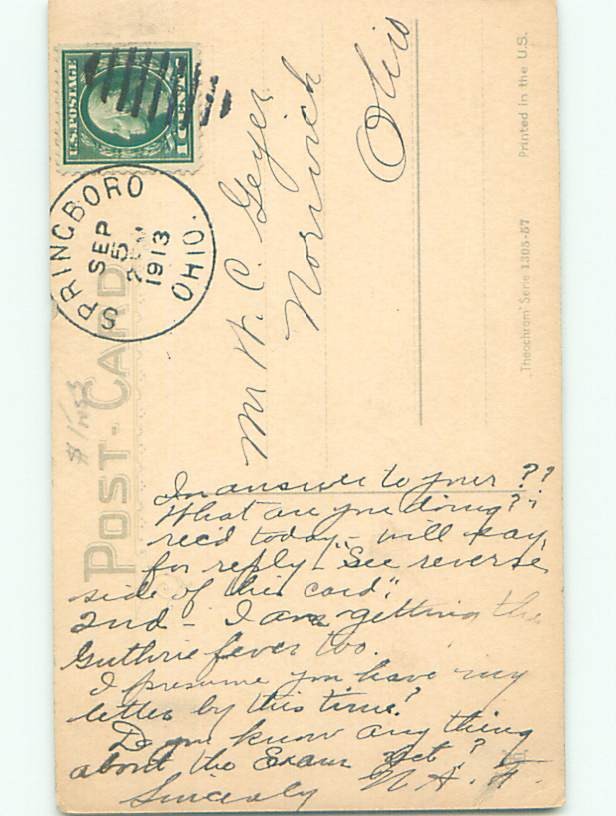 U.S. POSTAGE
1 CENT 1
SPRINGBORO
SEP
5
1913
OHIO.
POST-CARD
Mr W. C. Geyer
Norwich
Ohio
Printed in the U.S.
Theochrom Serie 1305-57
In answer to your ??
"What are you doing?"
rec'd today - will say,
for reply - "See reverse
side of this card";
2nd - I am getting the
Guthrie fever too.
I presume you have my
letter by this time?
Do you know anything
about the Exam yet?
Sincerely N. A. F.